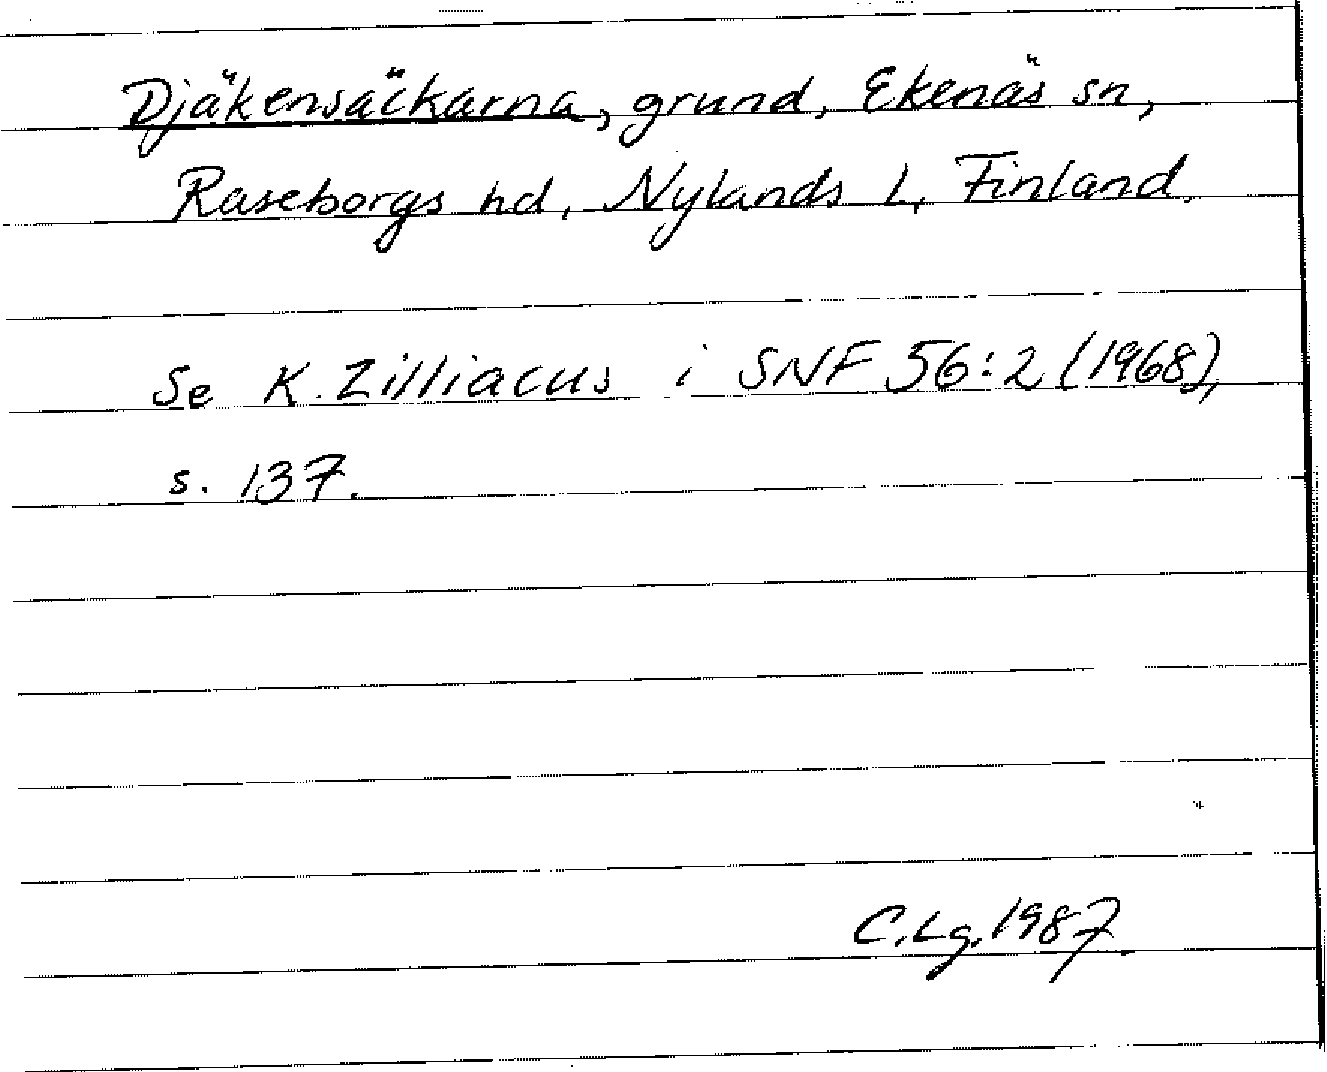 Djäkensäckarna, grund, Ekenäs sn,
Raseborgs hd, Nylands l, Finland.
Se K. Zilliacus i SNF 56:2 (1968),
s. 137.
C. Lg. 1987.